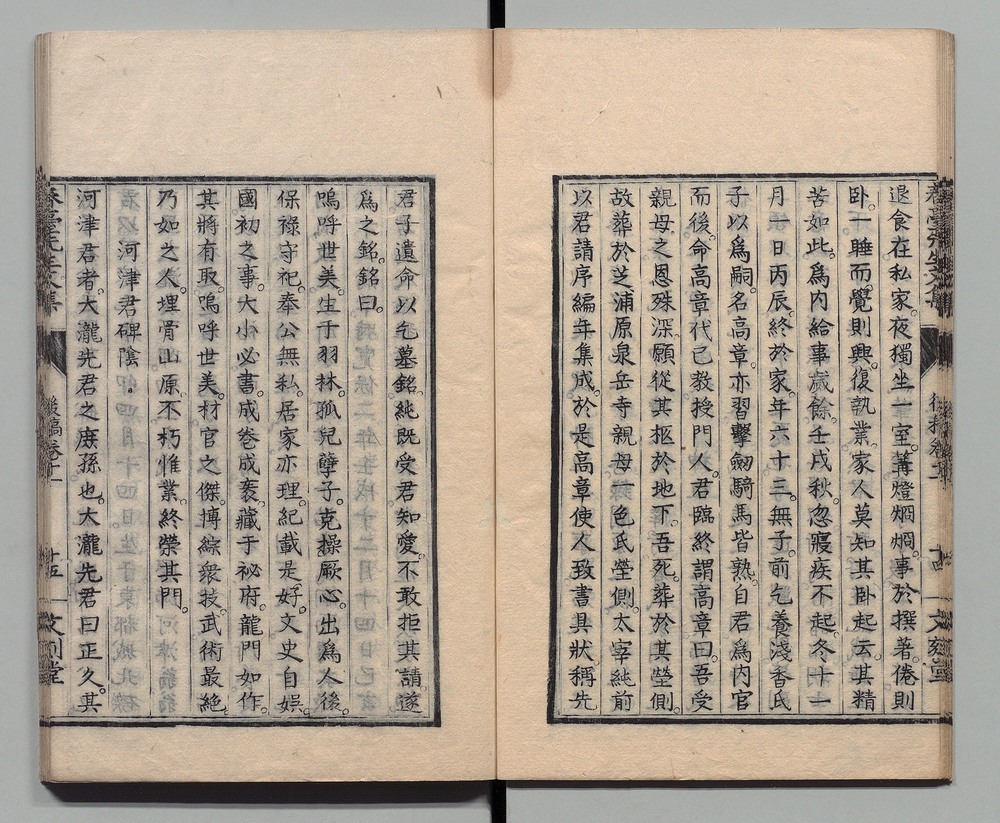 退食在私家。夜獨坐一室。篝燈烱烱。事於撰著。倦則
臥。一睡而覺則興。復執業。家人莫知其臥起云。其精
苦如此。爲内給事歲餘。壬戌秋。忽寢疾不起。冬十一
月一日丙辰。終於家。年六十三。無子。前乞養淺香氏
子以爲嗣。名高章。亦習擊劒騎馬皆熟。自君爲内官
而後。命高章代己教授門人。君臨終。謂高章曰。吾受
親母之恩殊深。願從其柩於地下。吾死。葬於其塋側。
故葬於芝浦原泉岳寺親母一色氏塋側。太宰純前
以君請序編年集成。於是高章使人致書具狀稱先
君子遺命以乞墓銘。純既受君知愛。不敢拒其請。遂
爲之銘。銘曰。
嗚呼世美。生于羽林。孤兒孽子。克操厥心。出爲人後。
保祿守祀。奉公無私。居家亦理。紀載是好。文史自娯。
國初之事。大小必書。成卷成袠。藏于祕府。龍門如作。
其將有取。嗚呼世美。材官之傑。摶綜衆技。武術最絶。
乃如之人。埋骨山原。不朽惟業。終榮其門。
河津君碑陰。
河津君者。大瀧先君之庶孫也。大瀧先君曰正久。其
後稿卷十一
十五